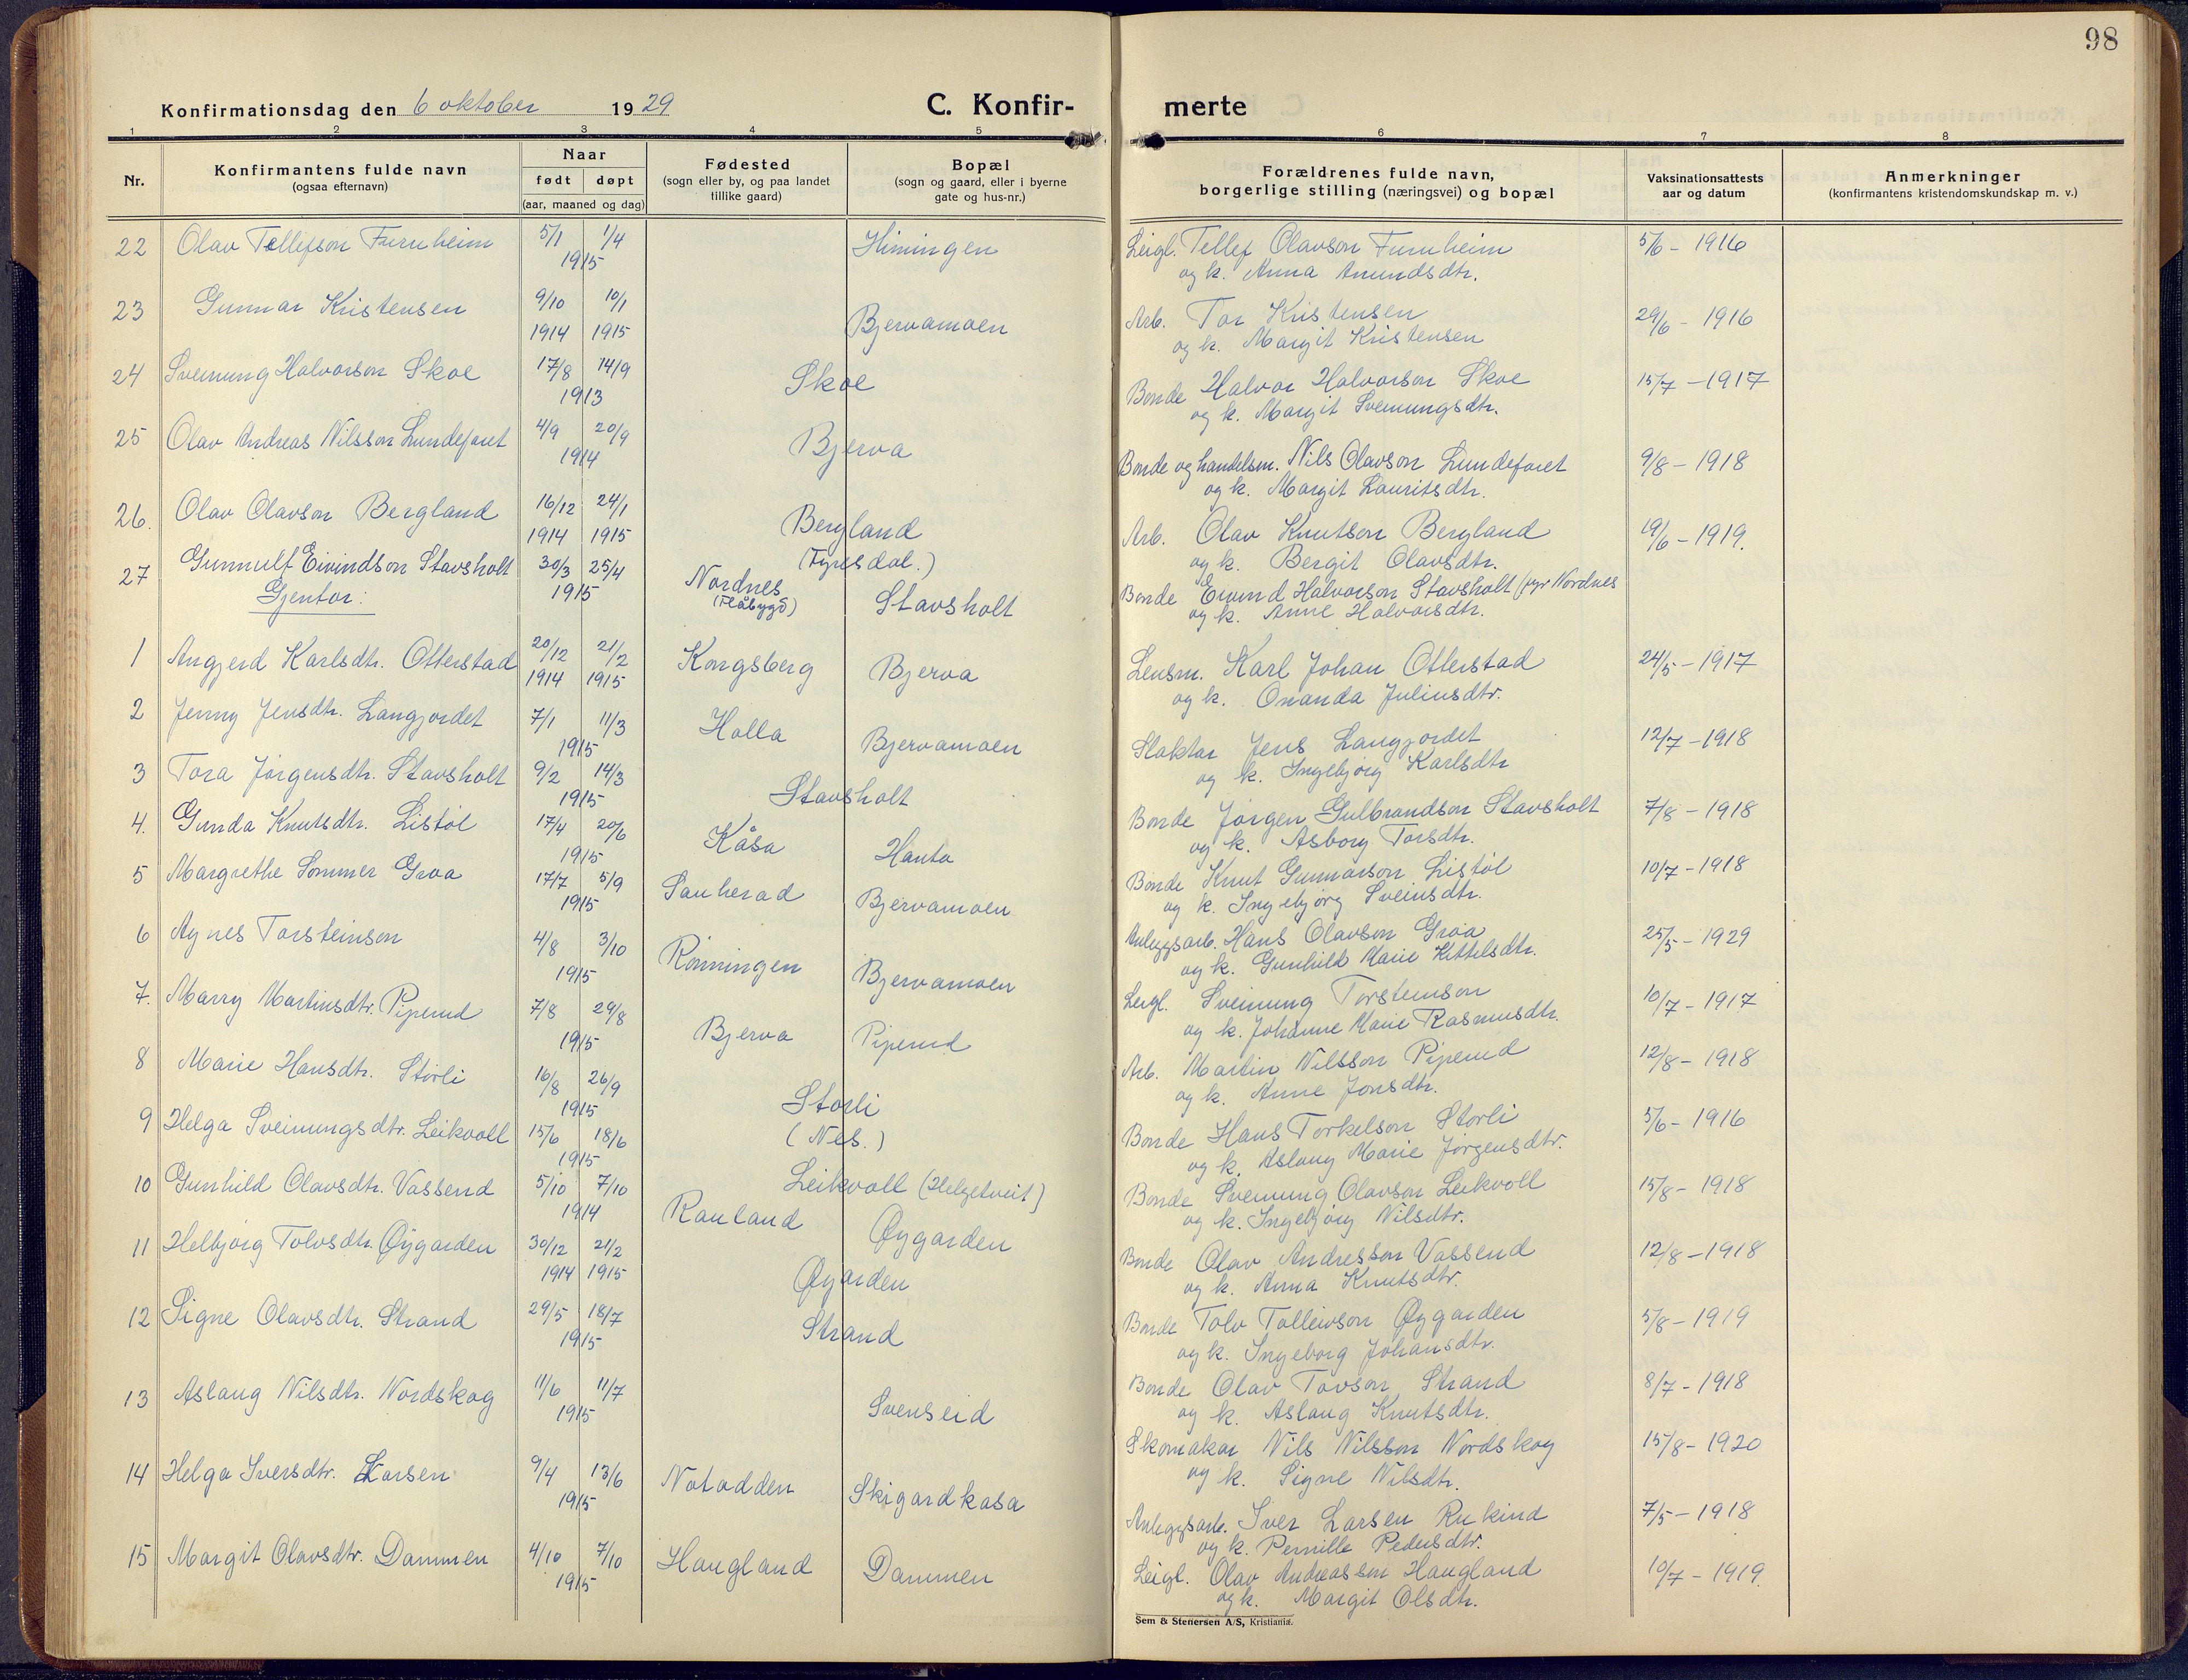 98
Konfirmationsdag den 6 oktober 1929 C. Konfir- merte
1 2 3 4 5 6 7 8
Nr. Konfirmantens fulde navn (ogsaa efternavn) Naar født døpt (aar, maaned og dag) Fødested (sogn eller by, og paa landet tillike gaard) Bopæl (sogn og gaard, eller i byerne gate og hus-nr.) Forældrenes fulde navn, borgerlige stilling (næringsvei) og bopæl Vaksinationsattests aar og datum Anmerkninger (konfirmantens kristendomskundskap m. v.)
22 Olav Tellefson Furuheim 5/1 1/4 Himingen Leigl. Tellef Olavson Furuheim 5/6 - 1916
1915 og k. Anna Amundsdtr.
23 Gunnar Kristensen 9/10 10/1 Bjervamoen Arb. Tor Kristensen 29/6 - 1916
1914 1915 og k. Margit Kristensen
24 Sveinung Halvorson Skoe 17/8 14/9 Skoe Bonde Halvor Halvorson Skoe 15/7 - 1917
1913 og k. Margit Sveinungsdtr.
25 Olav Andreas Nilsson Lundefaret 4/9 20/9 Bjerva Bonde og handelsm. Nils Olavson Lundefaret 9/8 - 1918
1914 og k. Margit Lauritsdtr.
26. Olav Olavson Bergland 16/12 24/1 Bergland Arb. Olav Knutson Bergland 19/6 - 1919.
1914 1915 (Fyresdal.) og k. Bergit Olavsdtr.
27 Gunnulf Eivindson Stavsholt 30/3 25/4 Nordnes Stavsholt Bonde Eivind Halvorson Stavsholt (fyr Nordnes
1915 (Flåbygd) og k. Anne Halvorsdtr.
Gjentor:
1 Angjerd Karlsdtr. Otterstad 20/12 21/2 Kongsberg Bjerva Lensm. Karl Johan Otterstad 24/5 - 1917
1914 1915 og k. Onanda Juliusdtr.
2 Jenny Jensdtr. Langjordet 7/1 11/3 Holla Bjervamoen Slaktar Jens Langjordet 12/7 - 1918
1915 og k. Ingebjørg Karlsdtr
3 Tora Jørgensdtr. Stavsholt 9/2 14/3 Stavsholt Bonde Jørgen Gulbrandson Stavsholt 7/8 - 1918
1915 og k. Asborg Torsdtr.
4. Gunda Knutsdtr. Listøl 17/4 20/6 Kåsa Hanto Bonde Knut Gunnarson Listøl 10/7 - 1918
1915 og k. Ingebjørg Sveinsdtr.
5 Margrethe Sommer Groa 17/7 5/9 Sauherad Bjervamoen Anleggsarb. Hans Olavson Groa 25/5 - 1929
1915 og k. Gunhild Marie Kittelsdtr.
6 Agnes Torsteinson 4/8 3/10 Rønningen Bjervamoen Leigl. Sveinung Torsteinson 10/7 - 1917
1915 og k. Johanne Marie Rasmusdtr.
7. Marry Martinsdtr. Piperud 7/8 29/8 Bjerva Piperud Arb. Martin Nilsson Piperud 12/8 - 1918
1915 og k. Anne Jonsdtr.
8 Marie Hansdtr. Storli 16/8 26/9 Storli Bonde Hans Torkelson Storli 5/6 - 1916
1915 (Nes.) og k. Aslaug Marie Jørgensdtr.
9 Helga Sveinungsdtr. Leikvoll 15/6 18/6 Leikvoll (Helgetveit) Bonde Sveinung Olavson Leikvoll 15/8 - 1918
1915 og k. Ingebjørg Nilsdtr.
10 Gunhild Olavsdtr. Vassend 5/10 7/10 Rauland Øygarden Bonde Olav Andresson Vassend 12/8 - 1918
1914 og k. Anna Knutsdtr.
11 Helbjørg Tolvsdtr. Øygarden 30/12 21/2 Øygarden Bonde Tolv Tolleivson Øygarden 5/8 - 1919
1914 1915 og k. Ingeborg Johansdtr.
12 Signe Olavsdtr. Strand 29/5 18/7 Strand Bonde Olav Tovson Strand 8/7 - 1918
1915 og k. Aslaug Knutsdtr.
13 Aslaug Nilsdtr. Nordskog 11/6 11/7 Svenseid Skomakar Nils Nilsson Nordskog 15/8 - 1920
1915 og k. Signe Nilsdtr.
14 Helga Iversdtr. Larsen 9/4 13/6 Notodden Skigardkasa Anleggsarb. Iver Larsen Rukind 7/5 - 1918
1915 og k. Pernille Pedersdtr.
15 Margit Olavsdtr. Dammen 4/10 7/10 Haugland Dammen Leigl. Olav Andreassen Haugland 10/7 - 1919.
1915 og k. Margit Olsdtr.
Sem & Stenersen A/S, Kristiania.